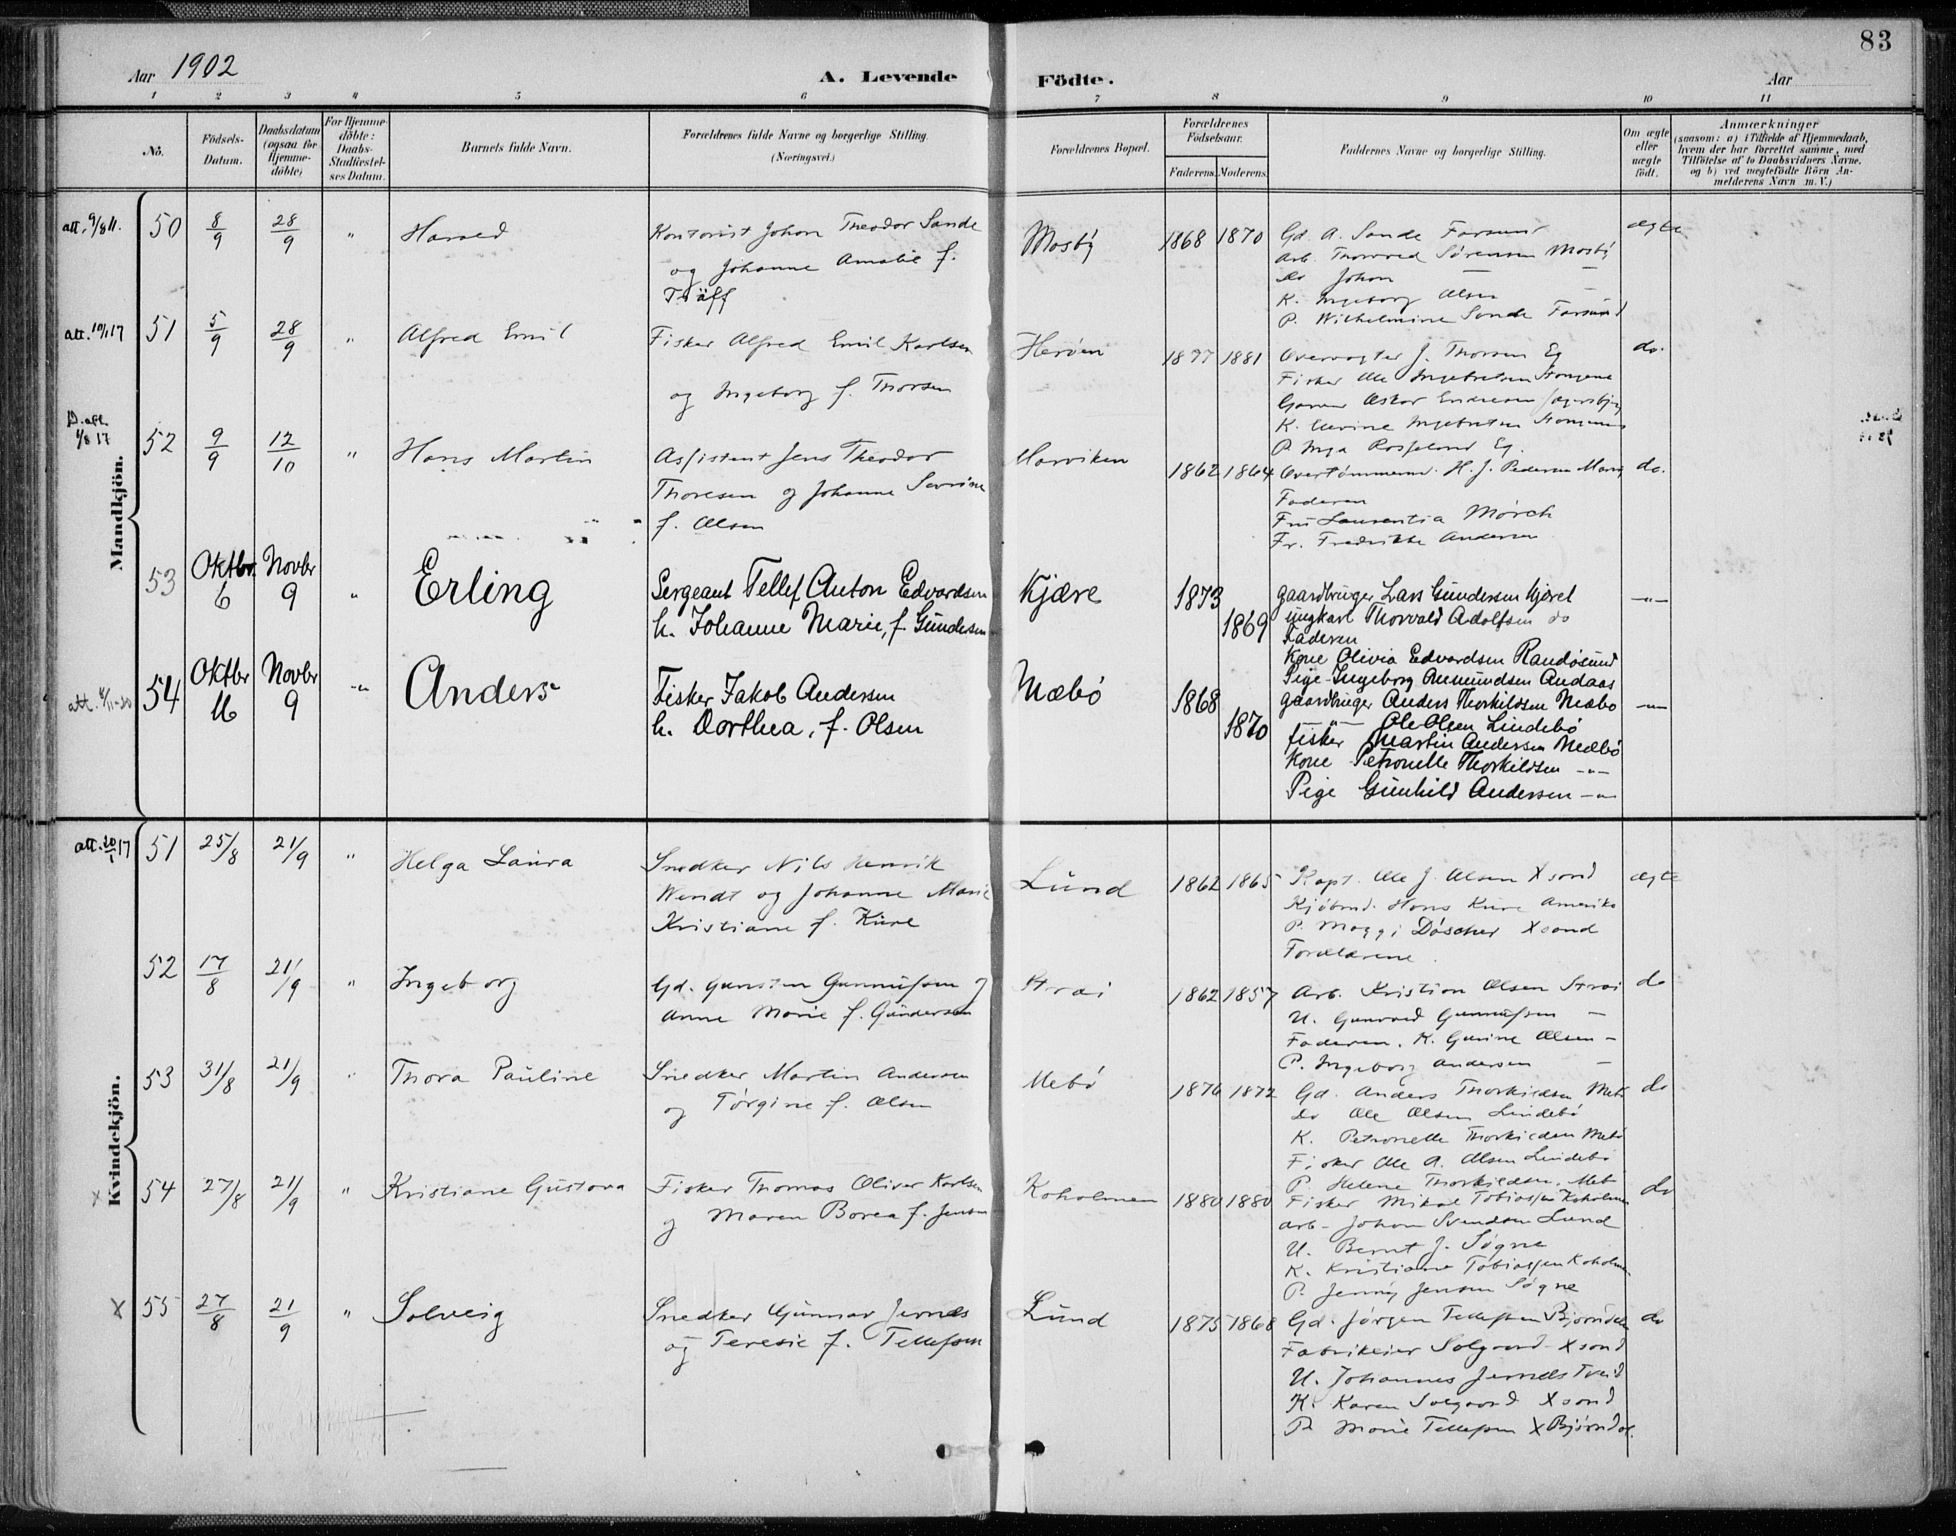 83
Aar 1902
A. Levende Födte.
Aar
1 2 3 4 5 6 7 8 9 10 11
No.
Födsels-Datum.
Daabsdatum (ogsaa for Hjemme-döbte)
For Hjemme-döbte: Daabs-Stadfæstel-ses Datum.
Barnets fulde Navn.
Forældrenes fulde Navne og borgerlige Stilling.
(Næringsvei.)
Forældrenes Bopæl.
Forældrenes Födselsaar.
Faderens. Moderens.
Faddernes Navne og borgerlige Stilling.
Om ægte eller uægte födt.
Anmærkninger
(saasom: a) i Tilfælde af Hjemmedaab,
hvem der har forrettet samme, med
Tilföielse af to Daabsvidners Navne.
og b) ved uægtefödte Börn An-
melderens Navn m. V.)
Mandkjön.
att. 9/8 11. 50 8/9 28/9 " Harald
Kontorist Johan Theodor Sande
og Johanne Amalie f.
Träff
Mosby 1868 1870
Gd. A. Sande Farsund
Arb. Thorvald Sørensen Mosby
do Johan — —
K. Ingeborg Olsen —
P. Wilhelmine Sande Farsund
ægte
att. 17 51 5/9 28/9 " Alfred Emil
Fisker Alfred Emil Karlsen
og Ingeborg f. Thorsen
Herøen 1877 1881
Overvogter J. Thorsen Eg
Fisker Ole Ingebretsen
Oskar Endresen
K. Ingebretsen
P. Inga Rosseland Eg.
do.
D. att. 1/8 17 52 9/9 12/10 " Hans Martin
Assistent Jens Theodor
Thoresen og Johanne
f. Olsen
Marviken 1862 1864
H. J. Pedersen
Faderen
Fru Laurentia Mörch
Fr. Fredrikke Andersen
do.
53 Oktbr. 6 Novbr 9 " Erling
Sergeant Tellef Anton Edvardsen
h. Johanne Marie, f. Gundersen
Kjære 1873 1869
gaardbruger Lars Gundersen Kjæret
ungkarl Thorvald Adolfsen do
Faderen
Kone Olivia Edvardsen Randøsund
Pige Ingeborg Anmundsen Andaas
—"—
att. 54 Oktbr 16 Novbr 9 —"— Anders
Fisker Jakob Andersen
h. Dorthea, f. Olsen
Mæbø 1868 1870
gaardbruger Anders Thorkildsen Mæbø
—"— Ole Olsen Lindebø
fisker Martin Andersen Mæbø
Kone Petronelle Thorkildsen —"—
Pige Gunhild Andersen —"—
—"—
Kvindekjön.
att. 20/1 17 51 25/8 21/9 " Helga Laura
Snedker Nils Henrik
Wendt og Johanne Marie
Kristiane f. Kure
Lund 1862 1865
Kapt. Ole J. Olsen Xsand
Kjøbmd. Hans Kure Amerika
P. Maggi Döscher Xsand
Forældrene.
ægte
52 17/8 21/9 " Ingeborg
Gd. Gunsten Gunnufsen og
Anne Marie f. Gundersen
Strai 1862 1857
Arb. Kristian Olsen Strai
U. Gunvald Gunnufsen —
Faderen. K. Gurine Olsen —
P. Ingeborg Andersen —
do
53 31/8 21/9 " Thora Pauline
Snedker Martin Andersen
og Törgine f. Olsen
Mebø 1876 1872
Gd. Anders Thorkildsen Meb
do Ole Olsen Lindebø
K. Petronelle Thorkildsen Mebø
Fisker Ole A. Olsen Lindebø
P. Helene Thorkildsen. Meb
do
x 54 27/8 21/9 " Kristiane Gustava
Fisker Thomas Oliver Karlsen
og Maren Borea f. Jensen
Koholmen 1880 1880
Fisker Mikal Tobiassen Koholmen
Arb. Johan Svendsen Lund
U. Bernt J. Søgne
K. Kristiane Tobiassen Koholmen
P. Jenny Jensen Søgne
do
x 55 27/8 21/9 " Solveig
Snedker Gunnar Jernæs
og Teresie f. Tellefsen
Lund 1875 1868
Gd. Jørgen Tellefsen Bjørndalen
Fabrikeier Solgaard Xsand
U. Johannes Jernæs Tveid
K. Karen Solgaard Xsand
P. Marie Tellefsen X Bjørndal.
do